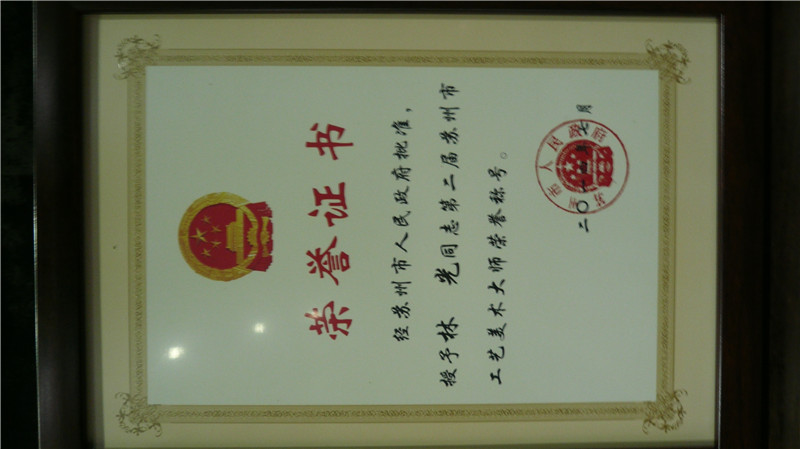 荣誉证书
经苏州市人民政府批准，
授予林 光同志第二届苏州市
工艺美术大师荣誉称号。
州市人民政府
七月